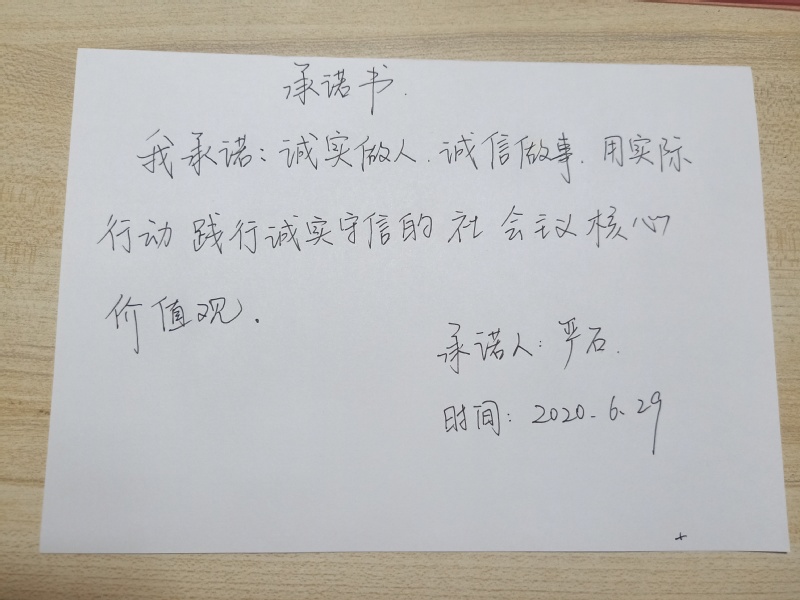 承诺书.
我承诺:诚实做人.诚信做事.用实际
行动践行诚实守信的社会主义核心
价值观.
承诺人:严石.
时间:2020.6.29